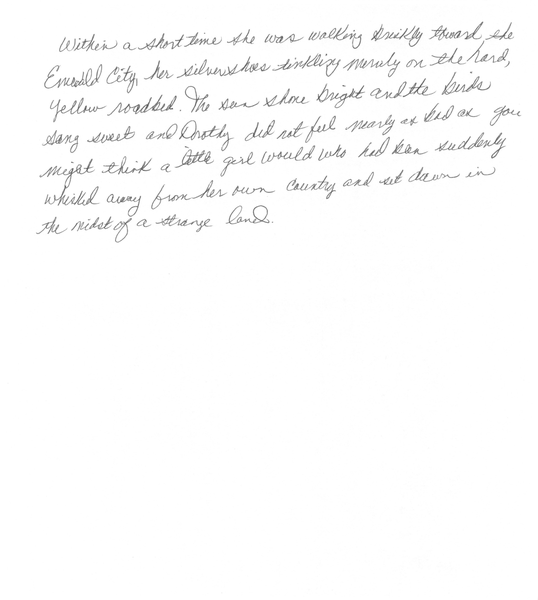 Within a short time she was walking briskly toward the
Emerald City, her silver shoes tinkling merrily on the hard,
yellow roadbed. The sun shone bright and the birds
sang sweet and Dorothy did not feel nearly as bad as you
might think a little girl would who had been suddenly
whisked away from her own country and set down in
the midst of a strange land.